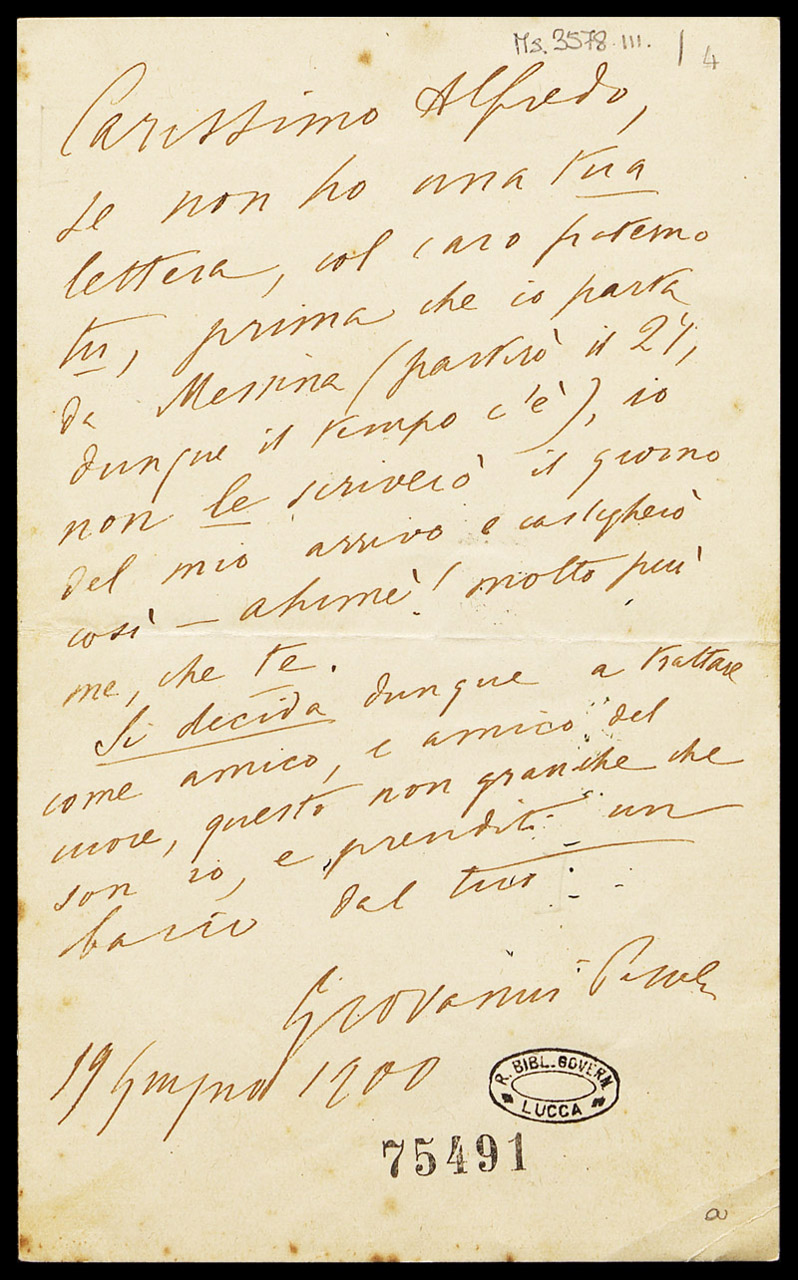 Ms. 3578.III. 4
Carissimo Alfredo,
se non ho una tua
lettera, col caro fraterno
tu, prima che io parta
da Messina (partirò il 24,
dunque il tempo c'è), io
non le scriverò il giorno
del mio arrivo e castigherò
così — ahimè! molto più
me, che te.
Si decida dunque a trattare
come amico, e amico del
cuore, questo non granche che
son io, e prenditi un
bacio dal tuo
Giovanni Pascoli
19 Giugno 1900
R. BIBL. GOVERN.
LUCCA
75491
a